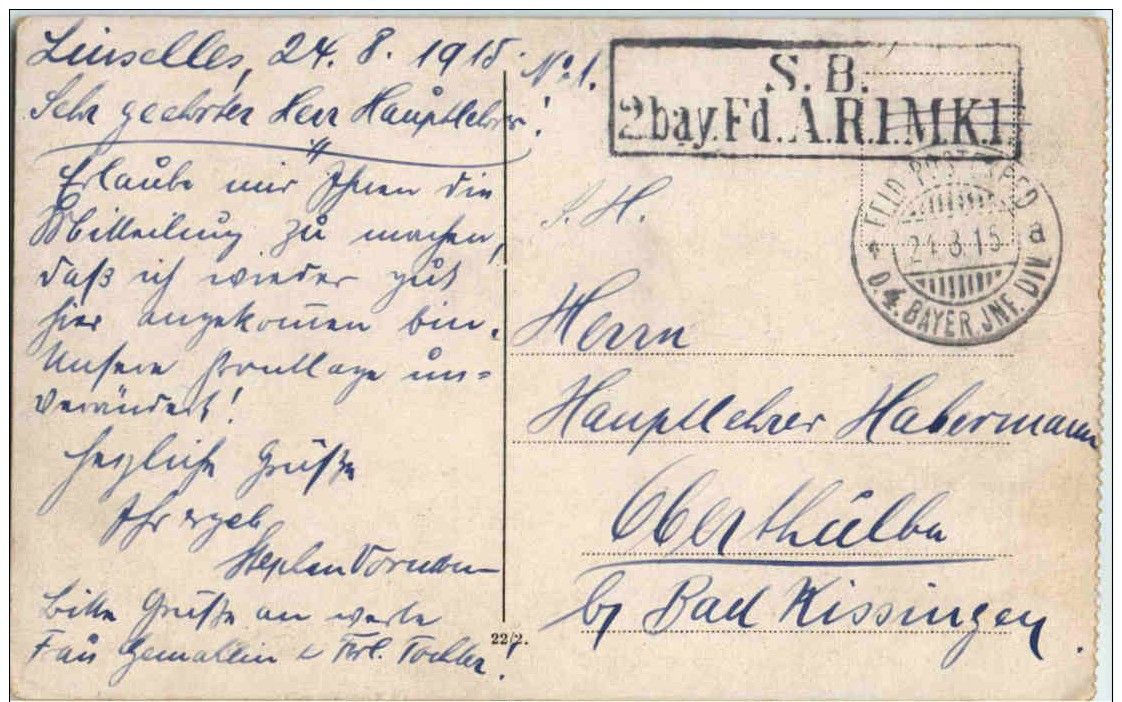 Linselles, 24. 8. 1915. No. 1.
Sehr geehrter Herr Hauptlehrer!
Erlaube mir Ihnen die
Mitteilung zu machen,
daß ich wieder gut
hier angekommen bin.
Unsere Frontlage un=
verändert!
Herzliche Grüße
Ihr ergeb.
Stephan
Bitte Grüße an werte
Frau Gemahlin u Frl. Tochter!
22/2.
S. B.
2 bay. Fd. A. R. I M. K. I
FELD POSTEXPED
24.8.15
D. 4. BAYER. JNF. DIV. a
S. H.
Herrn
Hauptlehrer Habermann
Oberthulba
b/ Bad Kissingen.